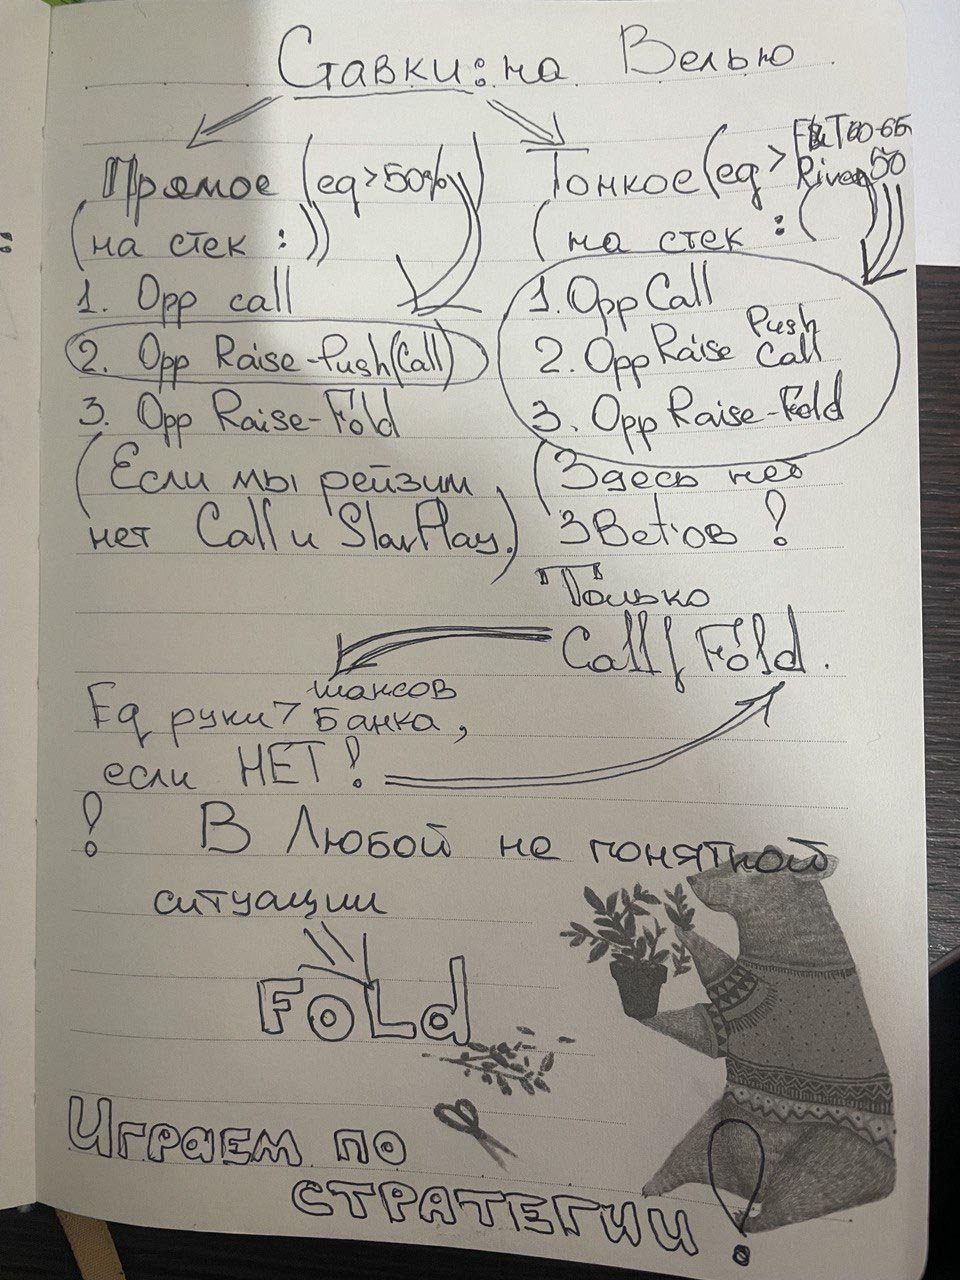 Ставки: на Велью
Прямое (eq > 50%)
(на стек :)
1. Opp call
2. Opp Raise-Push(Call)
3. Opp Raise-Fold
(Если мы рейзим
нет Call и SlowPlay.)
Тонкое (eq > T 60-65
River 50
(на стек :)
1. Opp Call
2. Opp Raise Push Call
3. Opp Raise-Fold
(Здесь нет
3Bet'ов !
Только
Call/Fold.
Eq руки > шансов
Банка,
если НЕТ!
! В Любой не понятной
ситуации
FoLd
Играем по
СТРАТЕГИИ!